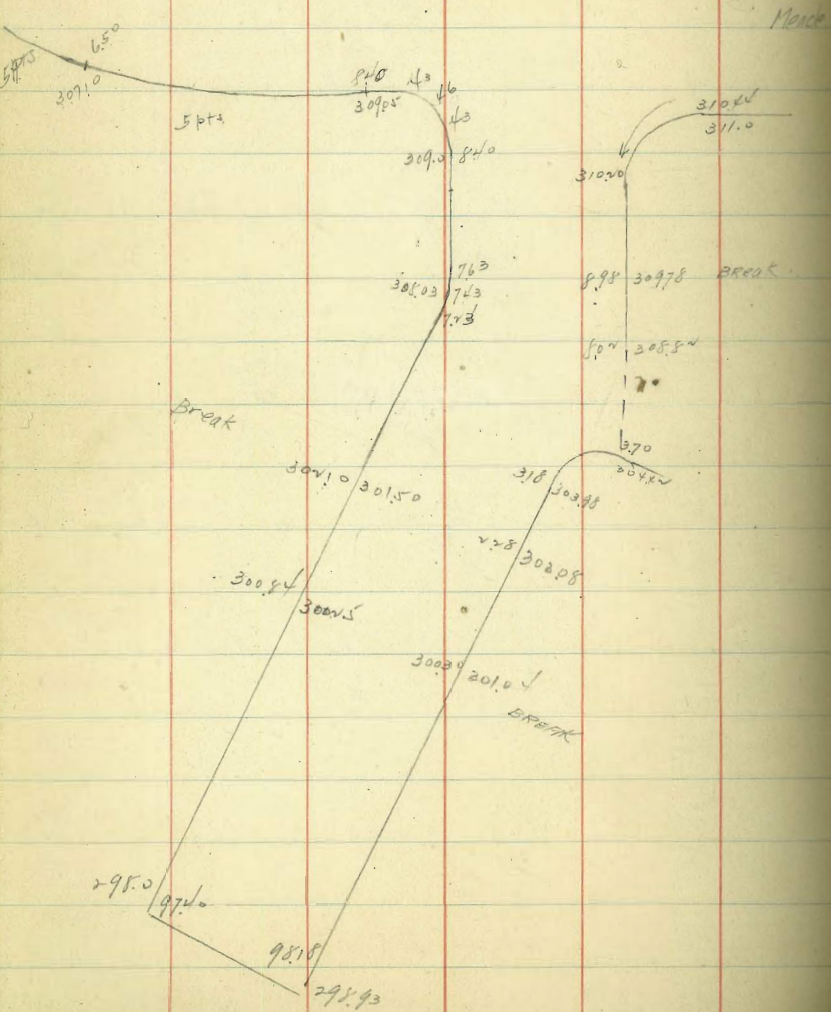 5 pts
6.50
307.10
5 pts
840
309.05
43
46
43
309.0 840
310.44
311.0
310.20
763
308.03 743
723
8.98 309.78 Break
8.02 308.82
Break
3.70
304.42
302.10 301.50
3.18 303.98
2.28 303.08
300.84
300.25
300.30 301.04
BREAK
298.0
97.40
98.18
298.93